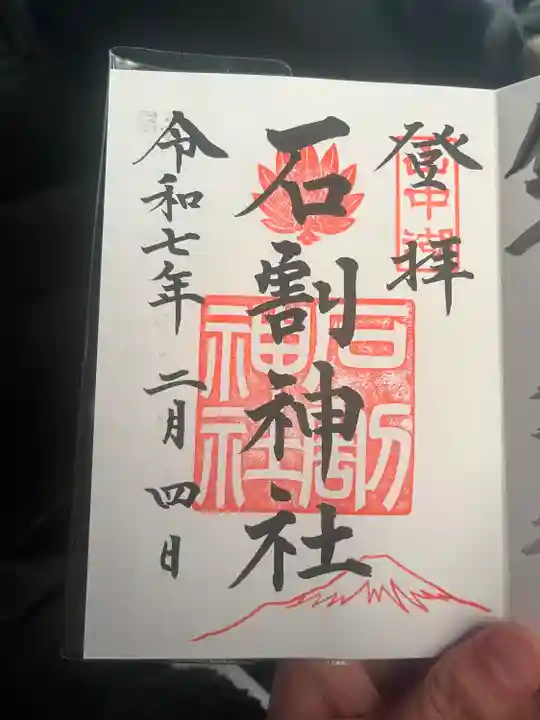 登拝
山中湖
石割神社
石割神社
令和七年二月四日